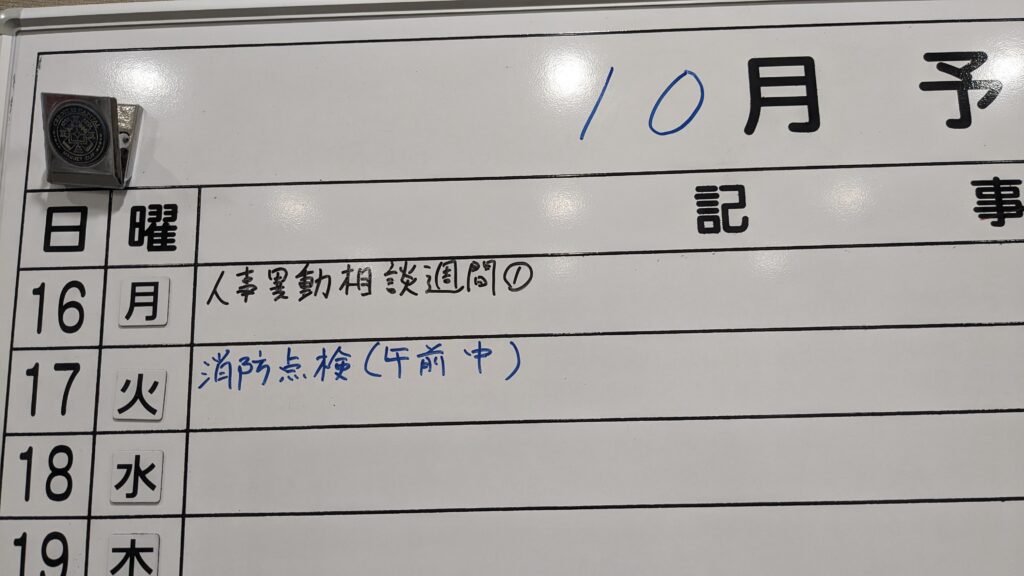 10月 予
日 曜 記 事
16 月 人事異動相談週間①
17 火 消防点検(午前中)
18 水
19 木